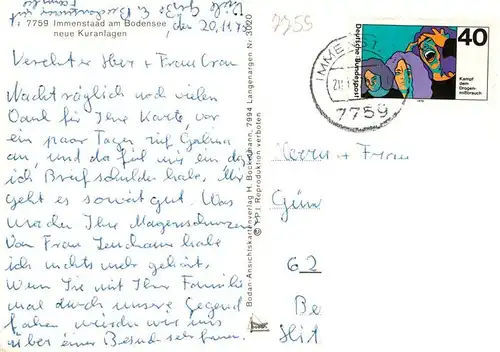 7759 Immenstaad am Bodensee
neue Kuranlagen
den 20.11.75
Verehrter Herr + Frau
Nachträglich noch vielen
Dank für Ihre Karte, vor
ein paar Tagen rief Galina
an, und da fiel mir ein das
ich Briefschulden habe. Mir
geht es soweit gut. Was
machen Ihre Magenschmerzen
Von Frau habe
ich nichts mehr gehört.
Wenn Sie mit Ihrer Familie
mal durch unsere Gegend
fahren würden wir uns
über einen Besuch sehr freuen.
Bodan-Ansichtskartenverlag H. Bockelmann, 7994 Langenargen Nr. 3020
© P.P.I. Reproduktion verboten
7759
IMMENST
7759
Deutsche Bundespost
40
Kampf
dem
Drogen-
mißbrauch
1975
Herrn + Frau
Gün
62
Be